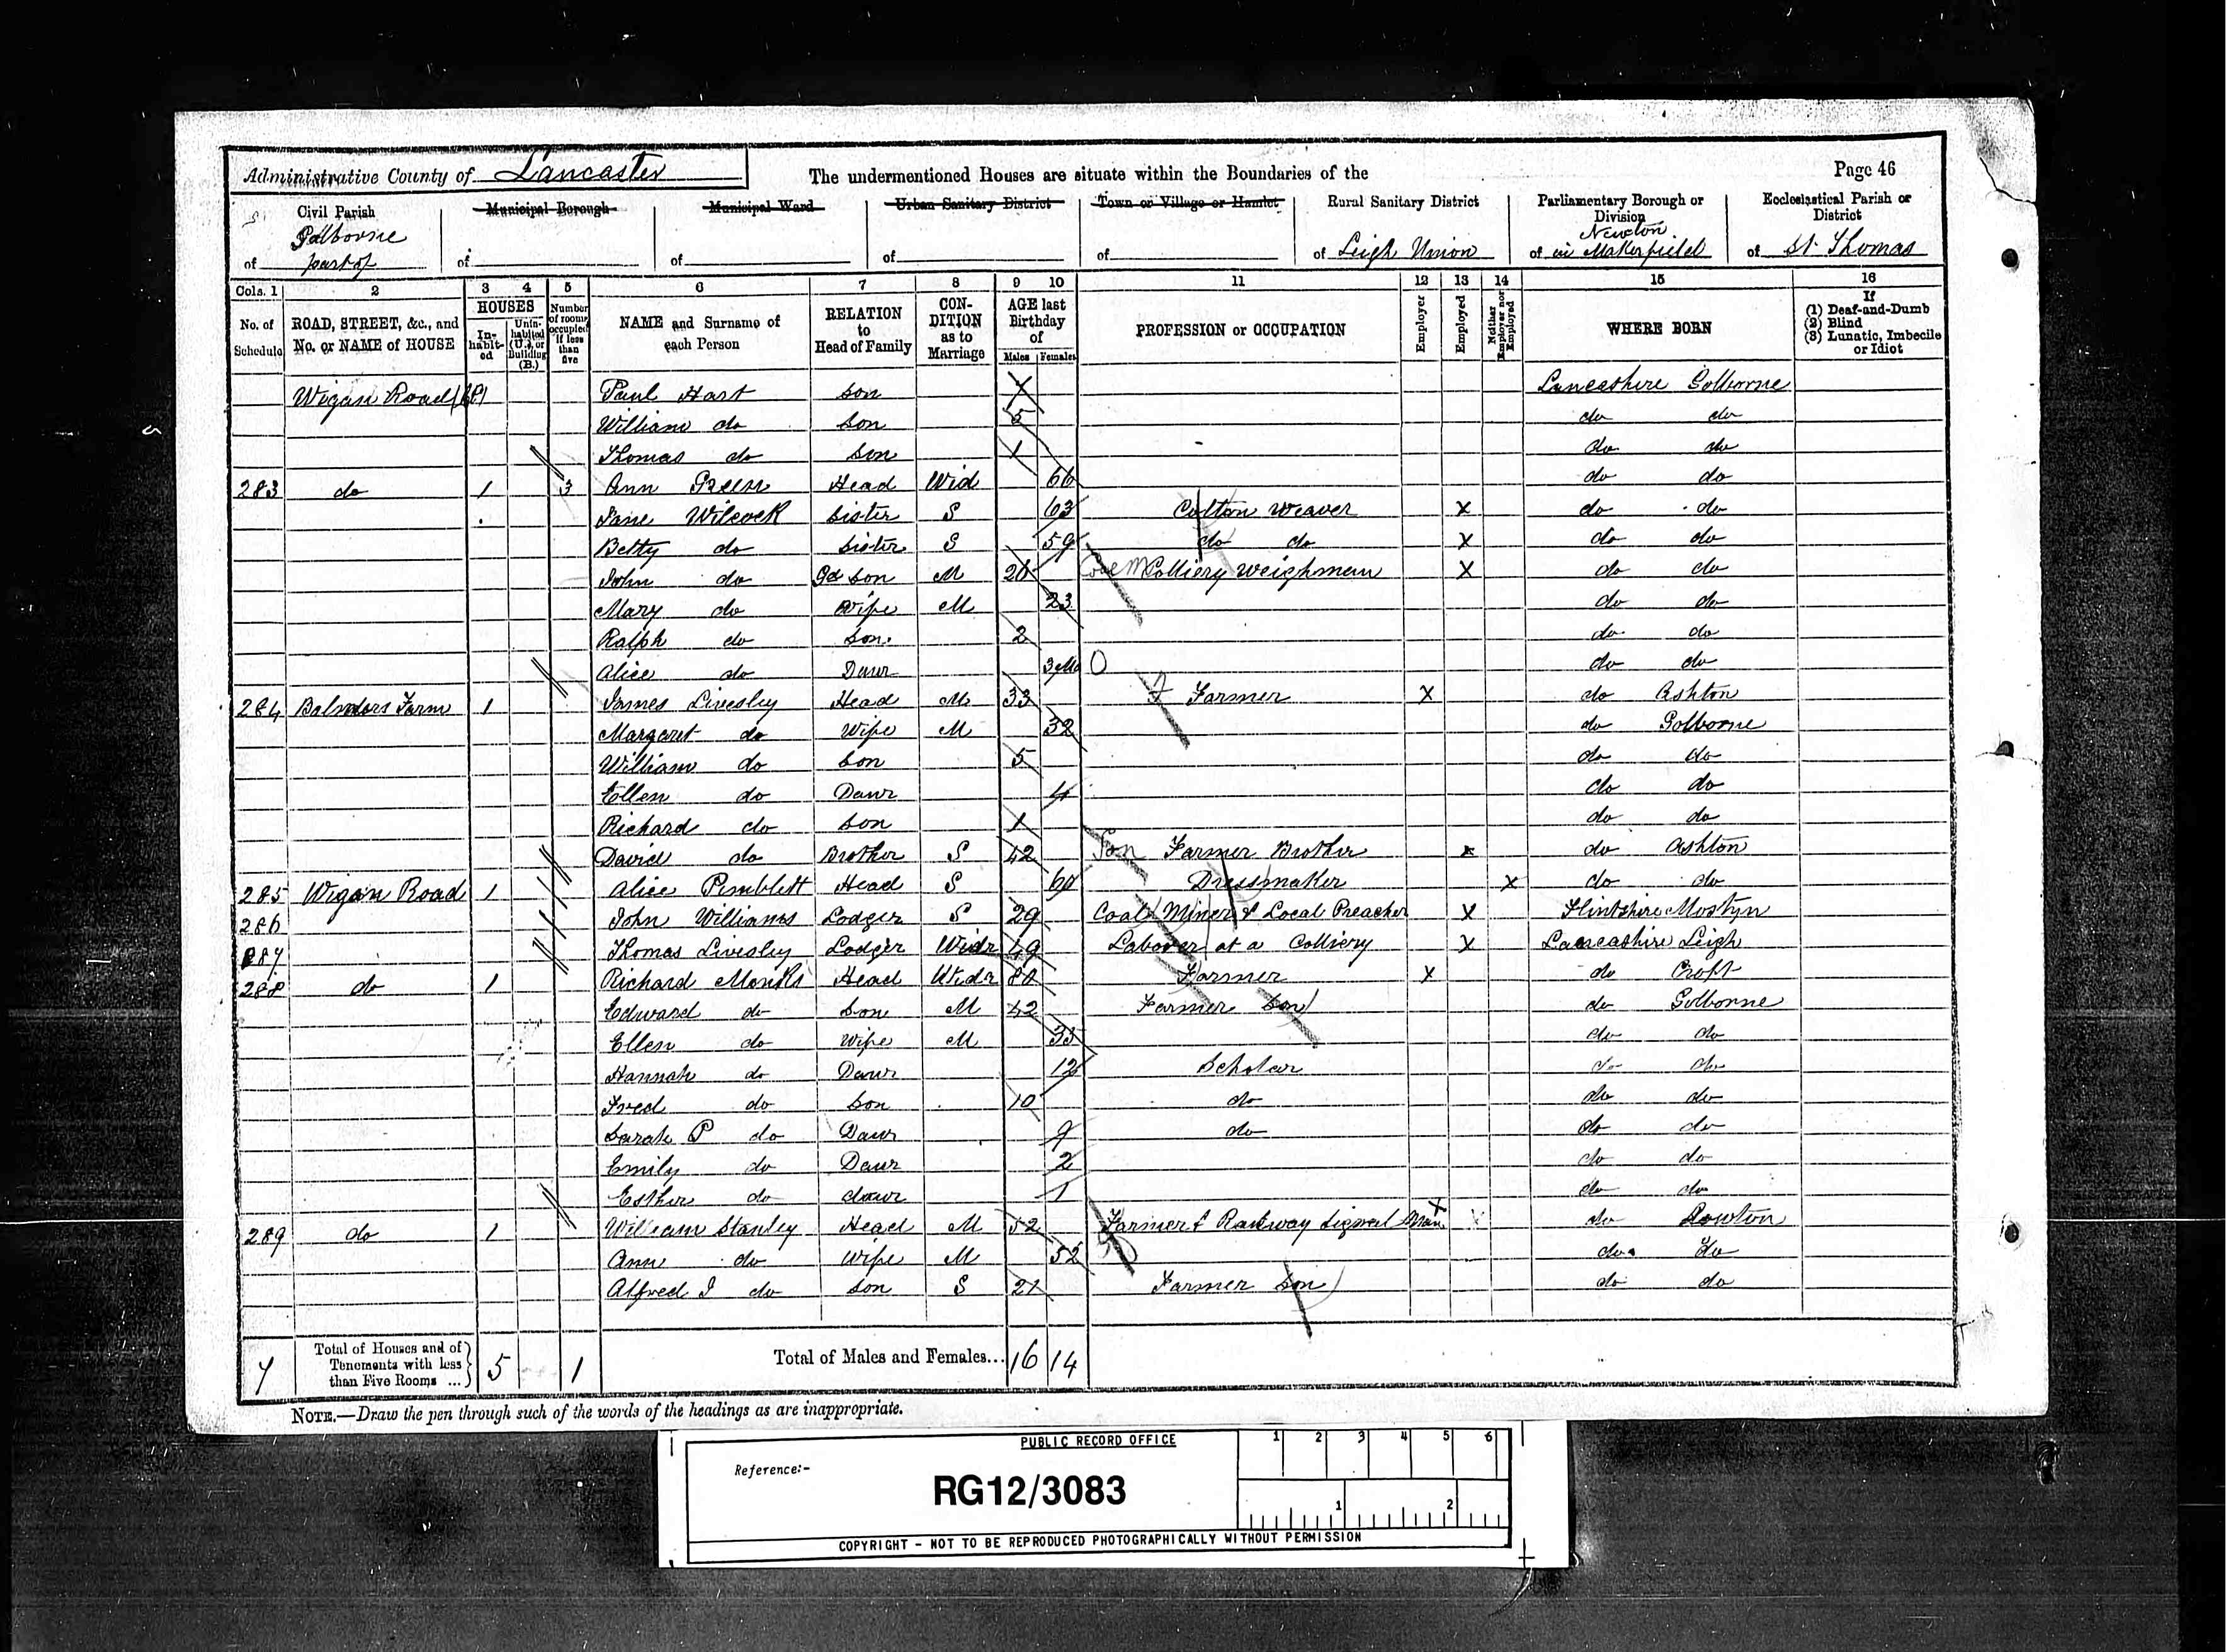 Administrative County of Lancaster The undermentioned Houses are situate within the Boundaries of the Page 46
Civil Parish Municipal Borough Municipal Ward Urban Sanitary District Town or Village or Hamlet Rural Sanitary District Parliamentary Borough or Division Ecclesiastical Parish or District
of Golborne part of of of of of of Leigh Union of Newton in Makerfield of St Thomas
Cols. 1 2 3 4 5 6 7 8 9 10 11 12 13 14 15 16
No. of Schedule ROAD, STREET, &c., and No. or NAME of HOUSE HOUSES Inhabited Uninhabited (U.), or Building (B.) Number of rooms occupied if less than five NAME and Surname of each Person RELATION to Head of Family CONDITION as to Marriage AGE last Birthday of Males Females PROFESSION or OCCUPATION Employer Employed Neither Employer nor Employed WHERE BORN If (1) Deaf-and-Dumb (2) Blind (3) Lunatic, Imbecile or Idiot
Wigan Road Paul Hart son Lancashire Golborne
William do son 5 do do
Thomas do son 1 do do
283 do 1 3 Ann Green Head Wid 66 do do
Jane Wilcock Sister S 63 Cotton Weaver X do do
Betty do Sister S 59 do do X do do
John do Gd Son M 26 Colliery Weighman X do do
Mary do Wife M 23 do do
Ralph do Son 2 do do
Alice do Daur 3Mo do do
284 Farm 1 James Livesley Head M 33 Farmer X do Ashton
Margaret do Wife M 32 do Golborne
William do Son 5 do do
Ellen do Daur 4 do do
Richard do Son 1 do do
David do Brother S 42 Son Farmer Brother x do Ashton
285 Wigan Road 1 Alice Pimblett Head S 60 Dressmaker X do do
286 John Williams Lodger S 29 Coal Miner & Local Preacher X Flintshire Mostyn
287 Thomas Livesley Lodger Widr 49 Laborer at a Colliery X Lancashire Leigh
288 do 1 Richard Monks Head Widr 80 Farmer X do Croft
Edward do Son M 42 Farmer Son do Golborne
Ellen do Wife M 35 do do
Hannah do Daur 12 Scholar do do
Fred do Son 10 do do do
Sarah P do Daur 9 do do do
Emily do Daur 2 do do
Esther do daur 1 do do
289 do 1 William Stanley Head M 52 Farmer & Railway Signal Man X do Lowton
Ann do Wife M 52 do do
Alfred J do Son S 21 Farmer Son do do
7 Total of Houses and of Tenements with less than Five Rooms ... 5 1 Total of Males and Females... 16 14
NOTE.—Draw the pen through such of the words of the headings as are inappropriate.
PUBLIC RECORD OFFICE
Reference:-
RG12/3083
1 2 3 4 5 6
1 2
COPYRIGHT - NOT TO BE REPRODUCED PHOTOGRAPHICALLY WITHOUT PERMISSION